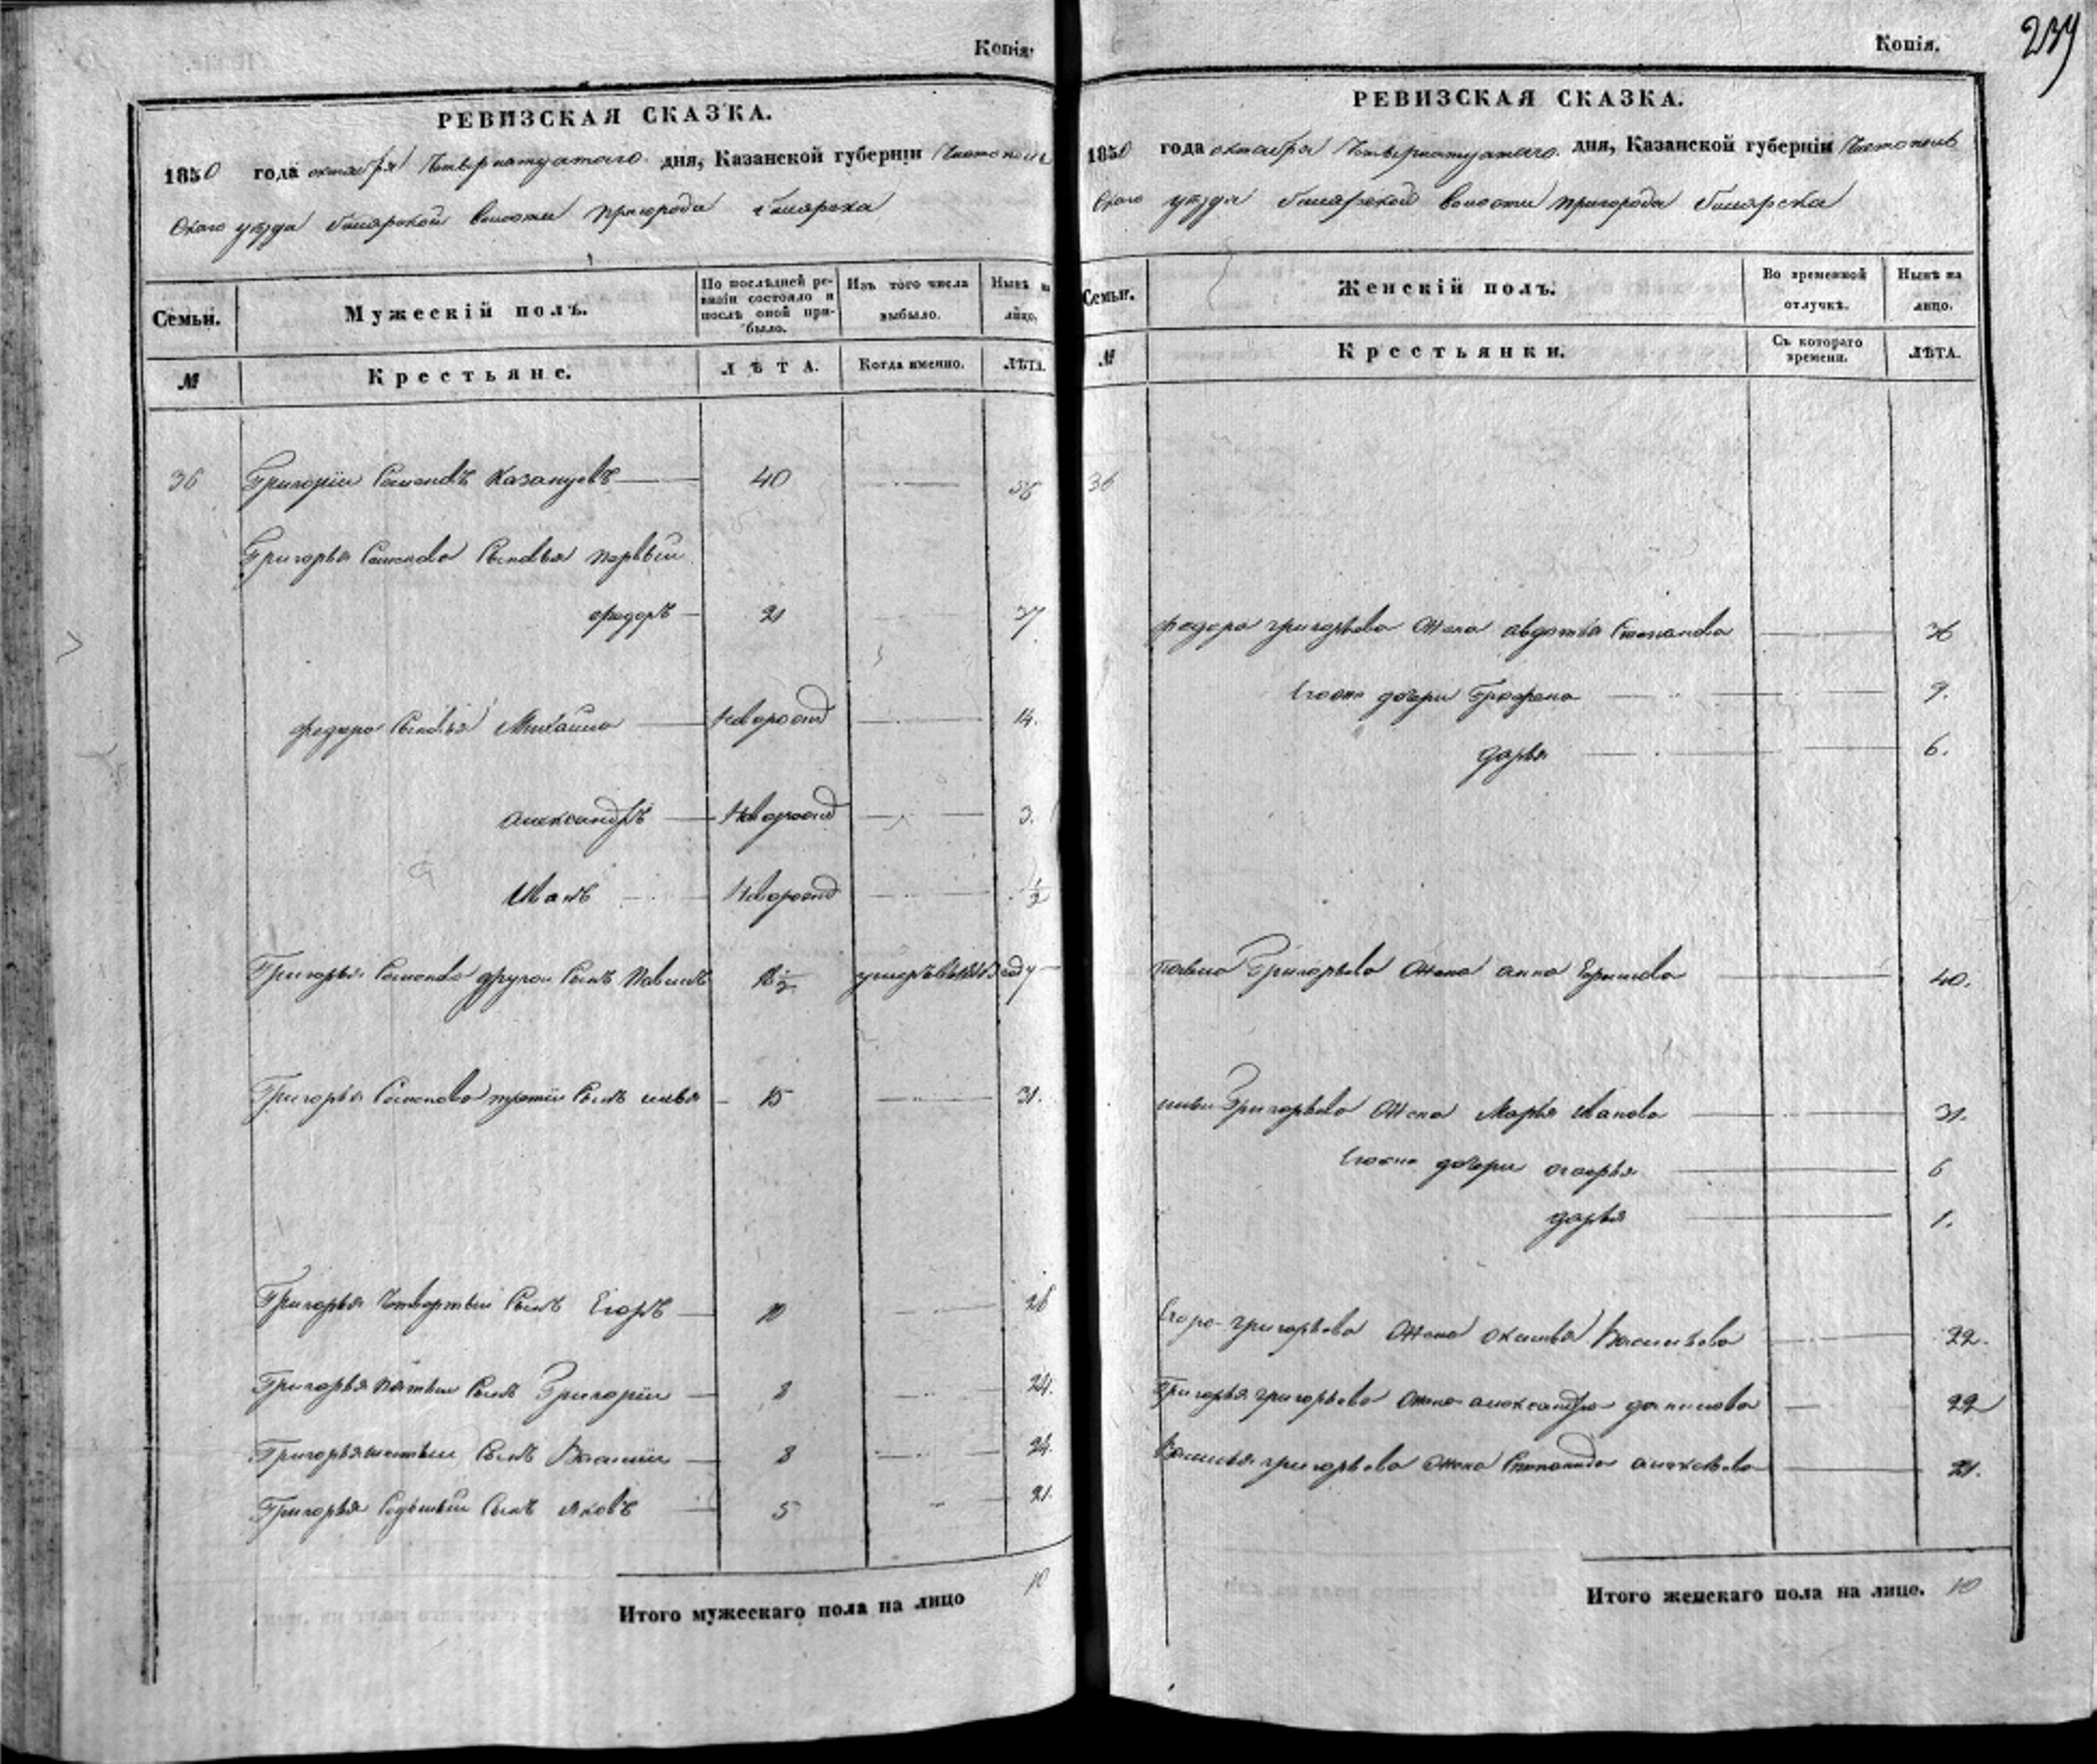 Копія.
РЕВИЗСКАЯ СКАЗКА.
1850 года октября Четвернатцатаго дня, Казанской губерніи Чистополь
скаго уѣзда билярской волости пригорода билярска
Семьи.
Мужескій полъ.
По послѣдней ре-
визіи состояло и
послѣ оной при-
было.
Изъ того числа
выбыло.
Нынѣ на
лицо.
№
Крестьяне.
ЛѢТА.
Когда именно.
ЛѢТА.
36 Григорій Семеновъ Казанцевъ 40
Григорья Семенова Сыновья первый
федоръ 21 37
федора Сыновья Михайло новорожд 14.
александръ новорожд 3.
Иванъ новорожд 1/2
Григорья Семенова другой Сынъ Павилъ 18 1/2 умеръ в 1843 году
Григорья Семенова третій Сынъ илья 15 31.
Григорья четвертый Сынъ Егоръ 10 26
Григорья пятый Сынъ Григорій 8 24.
Григорья шестый Сынъ Василій 8 24.
Григорья Седьмый Сынъ яковъ 5 21.
Итого мужескаго пола на лицо 10
Копія.
239
РЕВИЗСКАЯ СКАЗКА.
1850 года октабря Четвернатцатаго дня, Казанской губерніи Чистополь
скаго уѣзда билярской волости пригорода билярска
Семьи.
Женскій полъ.
Во временной
отлучкѣ.
Нынѣ на
лицо.
№
Крестьянки.
Съ котораго
времени.
ЛѢТА.
36
федора григорьева жена авдотья Степанова 36
Егоже дочери Графена 9.
дарья 6.
павила Григорьева жена анна 40.
ильи Григорьева жена Марья иванова 31.
Егоже дочери 6
дарья 1.
Егора григорьева жена Васильева 22.
Григорья григорьева жена александра данилова 22
Василья григорьева жена Степанида алексѣева 21.
Итого женскаго пола на лице. 10